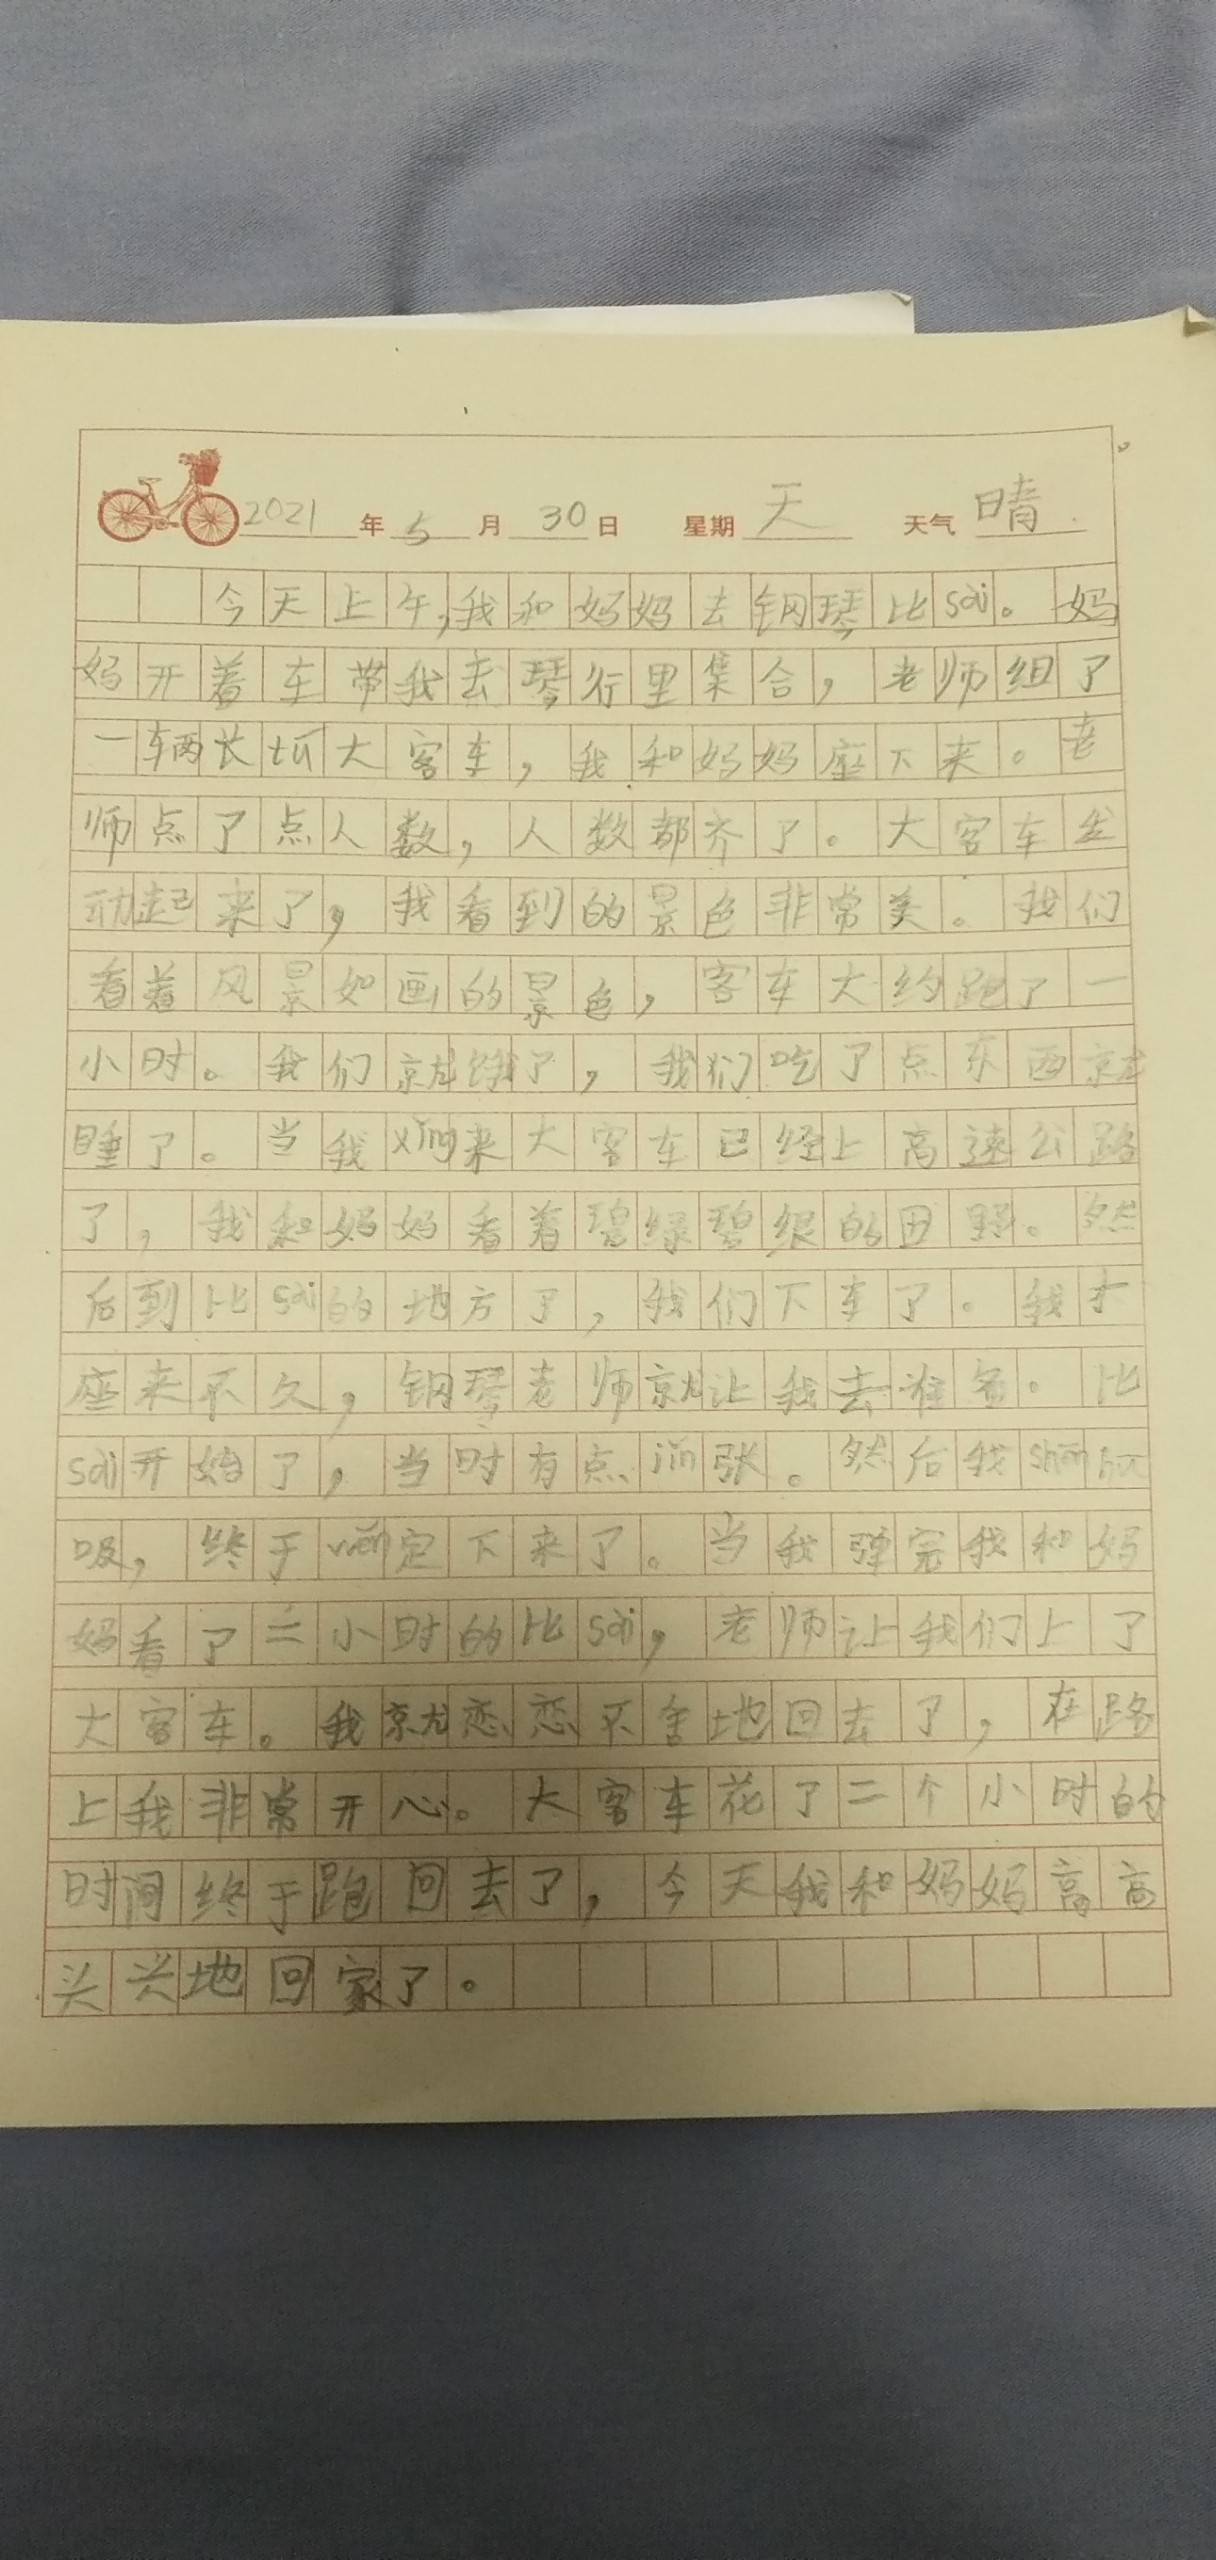 2021年5月30日 星期天 天气晴
今天上午,我和妈妈去钢琴比sài。妈
妈开着车带我去琴行里集合,老师组了
一辆长坂大客车,我和妈妈座下来。老
师点了点人数,人数都齐了。大客车发
动起来了,我看到的景色非常美。我们
看着风景如画的景色,客车大约跑了一
小时。我们就饿了,我们吃了点东西就
睡了。当我xǐng来大客车已经上高速公路
了,我和妈妈看着碧绿碧绿的田野。然
后到比sài的地方了,我们下车了。我才
座来不久,钢琴老师就让我去准备。比
sài开始了,当时有点jǐn张。然后我shēn hū
吸,终于wěn定下来了。当我弹完我和妈
妈看了二小时的比sài,老师让我们上了
大客车。我就恋恋不舍地回去了,在路
上我非常开心。大客车花了二个小时的
时间终于跑回去了,今天我和妈妈高高
头兴地回家了。